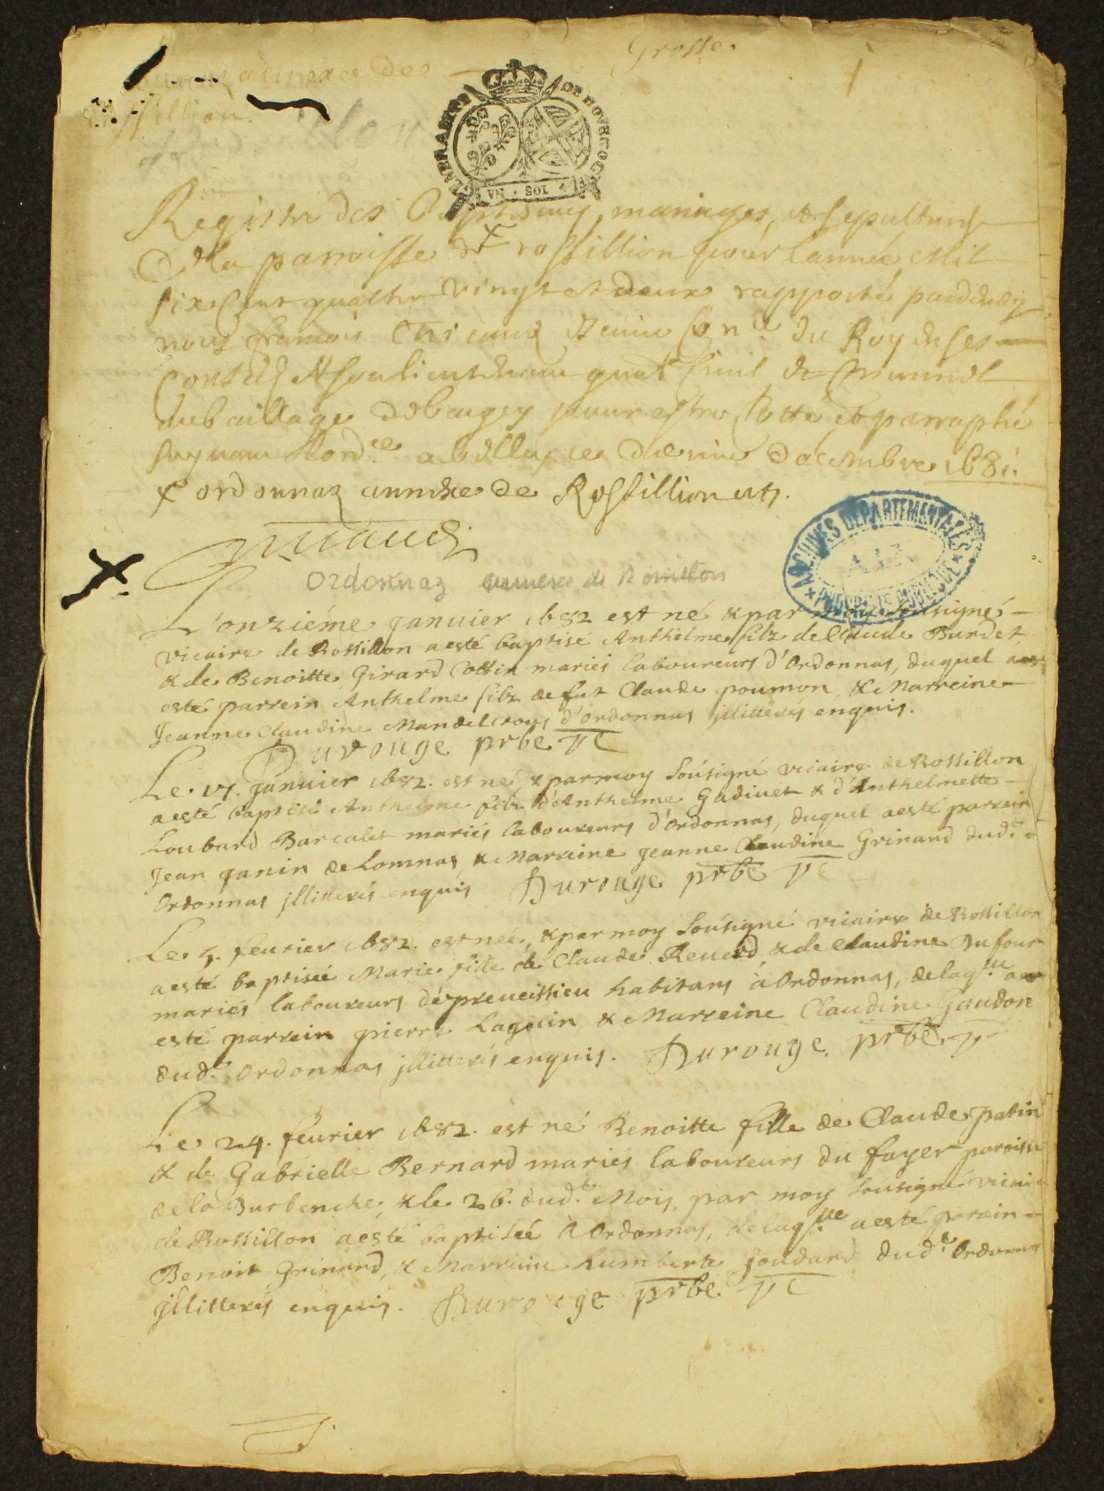 Grosse.
GENERALITE DE BOVRGOG
VN SOL
Registre des Baptesmes, mariages, et sepultures
De la parroisse de rossillion pour l'année mil
six Cent quattre vingt et deux rapporté pardevey
nous francois du Roy en ses
Conseils
du baillage de bugey pour estre Cotté et parraphé
a belley ce decembre 1681.
+ ordonnaz annexe de Rossillion
ordonnaz annexe de Rossillon
ARCHIVES DEPARTEMENTALES
AIN
PROPRIETE PUBLIQUE
L'onziéme janvier 1682 est né & par moy soussigné
vicaire de Rossillon a esté baptisé Anthelme filz de Claude Burdet
& de Benoitte Girard Cottin mariés laboureurs d'Ordonnas, duquel a
esté parrein Anthelme filz de fut Claude poumon & Marreine
Jeanne Claudine Mandelcroys d'Ordonnas jllitterés enquis.
Durouge prbe
Le 17. janvier 1682. est né & par moy soussigné vicaire de Rossillon
a esté baptisé Anthelme filz d'Anthelme Gudivet & d'Anthelmette
Loubard Barcalet mariés laboureurs d'Ordonnas, duquel a esté parrein
Jean janin de Lomnas & Marreine jeanne Claudine Grinand dud.t
Ordonnas jllitterés enquis Durouge prbe
Le 4. février 1682. est née, & par moy soussigné vicaire de Rossillon
a esté baptisée Marie fille de Claude Reverd & de Claudine Dufour
mariés laboureurs de preveissieu habitans à Ordonnas, de laq.lle a
esté parrein pierre Lagouin & Marreine Claudine Gaudon
dud.t Ordonnas jllitterés enquis. Durouge prbe
Le 24. février 1682. est né Benoitte fille de Claude patin
& de Gabrielle Bernard mariés laboureurs du fayer paroisse
de la Burbenche, & le 26. dud.t Mois, par moy soussigné vicaire
de Rossillon a esté baptisée à Ordonnas, de laq.lle a esté parrein
Benoit Grinand, & Marreine humberte Joudard dud.t Ordonnas
jllitterés enquis. Durouge prbe